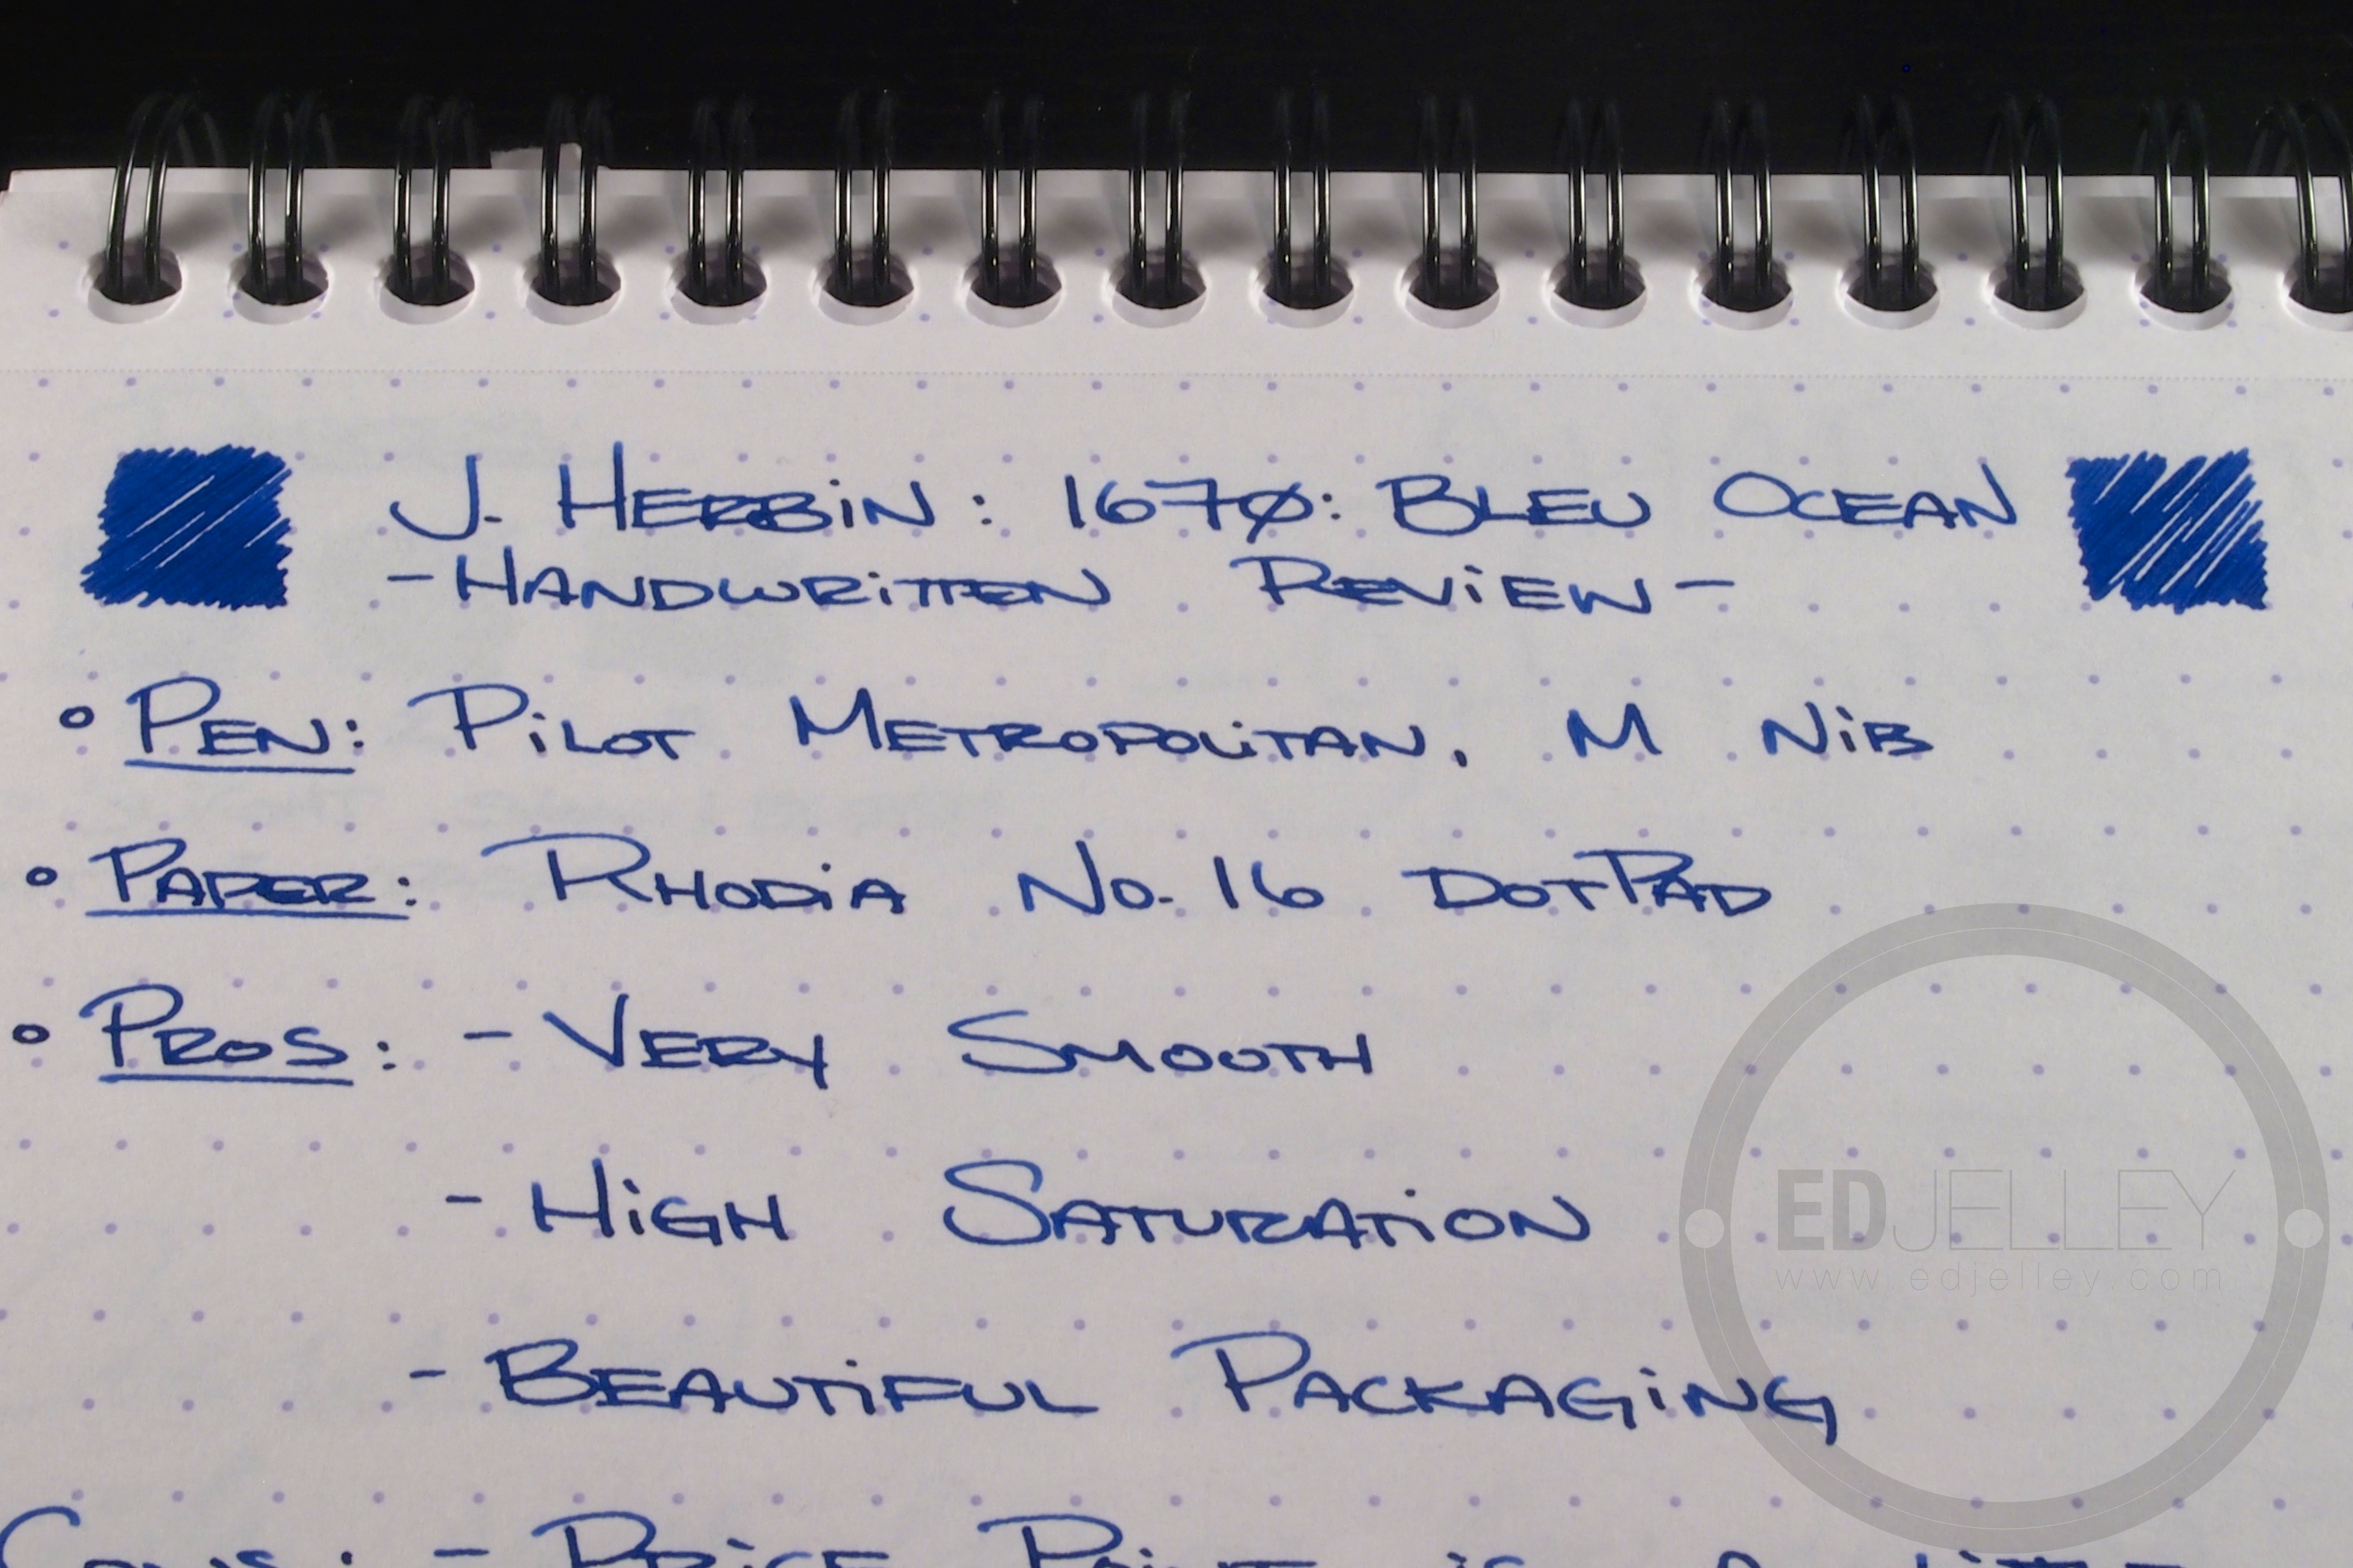 J. HERBiN : 1670: BLEU OCEAN
-HANDWRiTTEN REViEW-
° PEN: PiLOT METROPOLiTAN, M NiB
° PAPER: RHODiA No. 16 DOTPAD
° PROS: - VERY SMOOTH
- HiGH SATURATiON
- BEAUTiFUL PACKAGiNG
EDJELLEY
www.edjelley.com
CONS: - PRiCE POiNT iS A LiTTLE